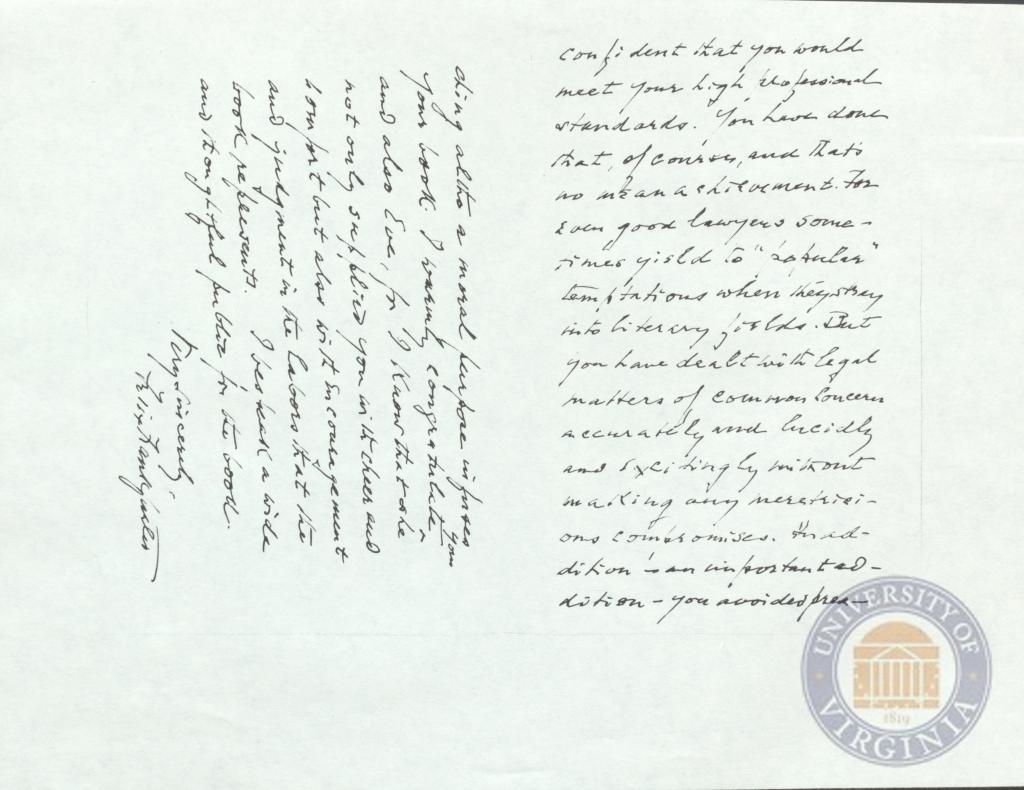 confident that you would
meet your high professional
standards. You have done
that, of course, and that's
no mean achievement. For
even good lawyers some-
times yield to "popular"
temptations when they stray
into literary fields. But
you have dealt with legal
matters of common concern
accurately and lucidly
and excitingly without
making any meretrici-
ous compromises. In ad-
dition - an important ad-
dition - you avoided prea-
ching altho a moral purpose infuses
your book. I warmly congratulate you
and also Eve, for I know that she
not only supplied you with cheer and
comfort but also with encouragement
and judgment in the labors that the
book represents. I bespeak a wide
and thoughtful public for the book.
Very sincerely,
Felix Frankfurter
UNIVERSITY OF
VIRGINIA
1819